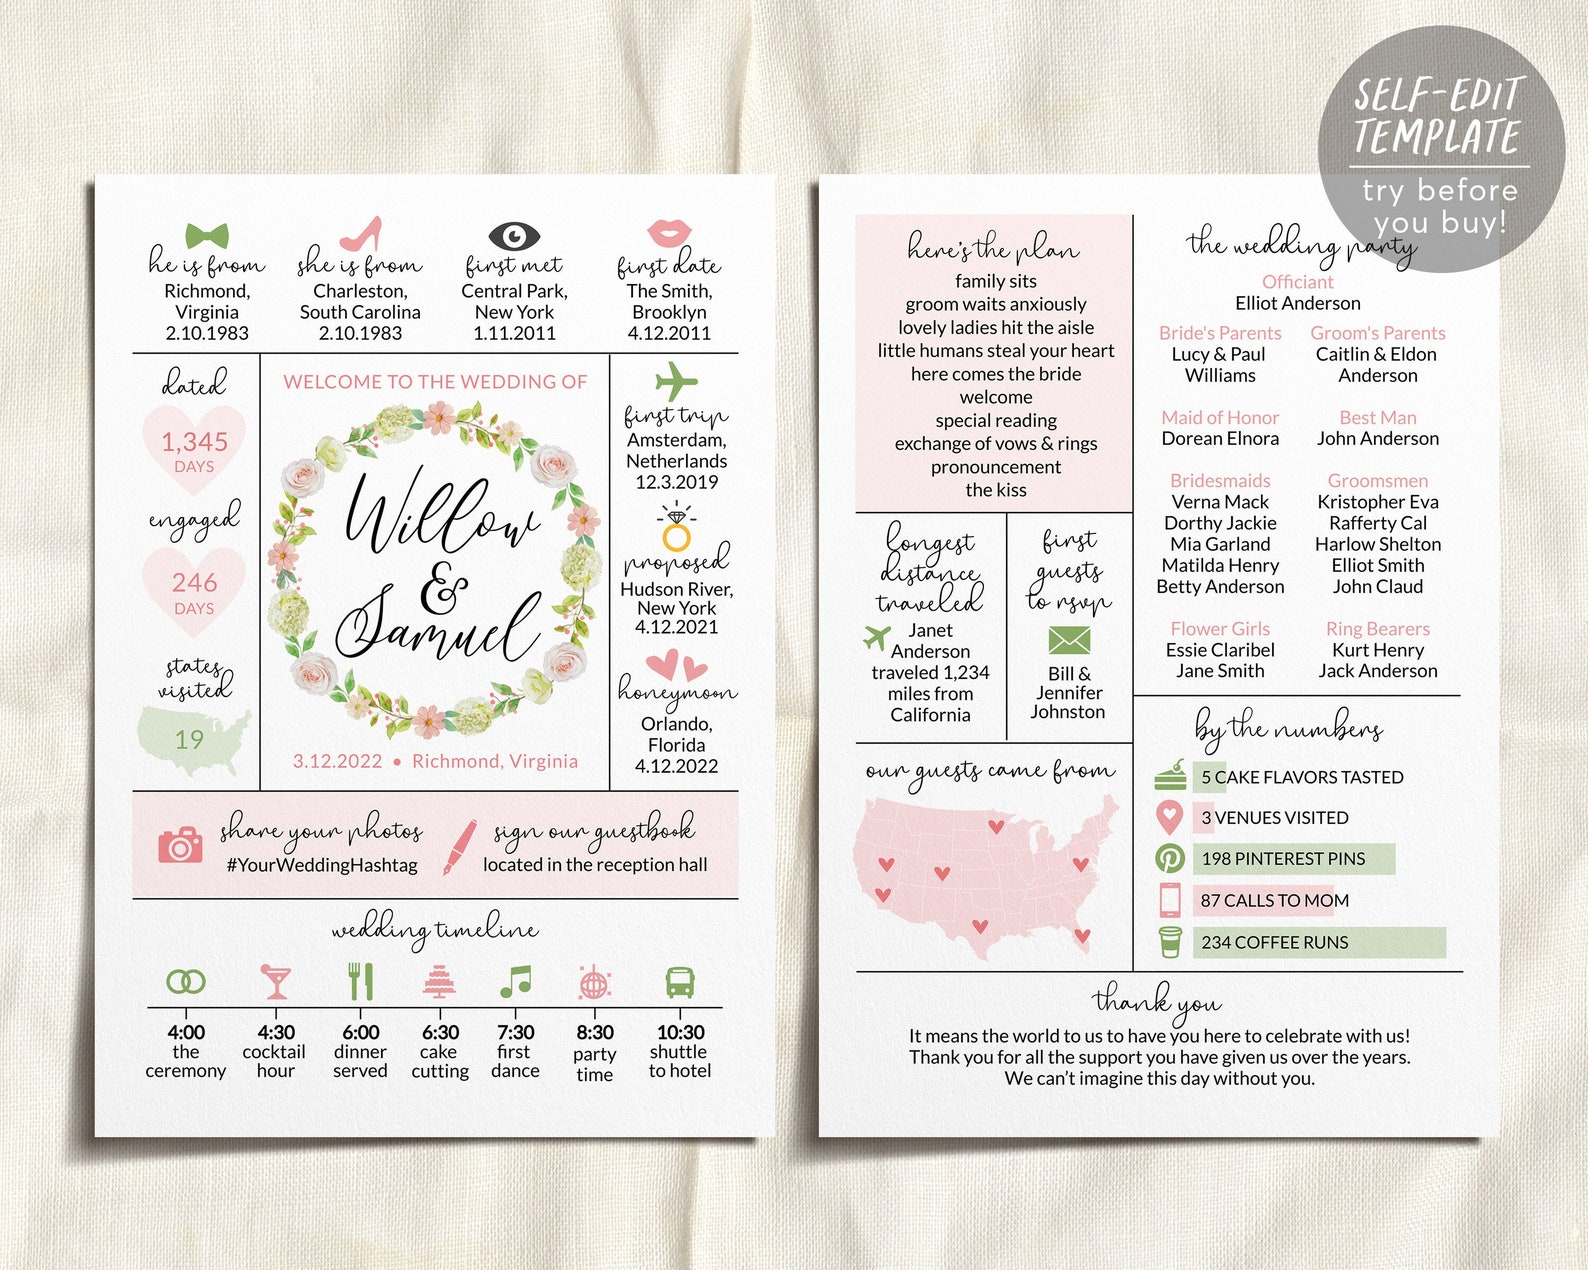 SELF-EDIT
TEMPLATE
try before
you buy!
he is from
Richmond,
Virginia
2.10.1983
she is from
Charleston,
South Carolina
2.10.1983
first met
Central Park,
New York
1.11.2011
first date
The Smith,
Brooklyn
4.12.2011
dated
1,345
DAYS
engaged
246
DAYS
states
visited
19
WELCOME TO THE WEDDING OF
Willow
&
Samuel
3.12.2022 • Richmond, Virginia
first trip
Amsterdam,
Netherlands
12.3.2019
proposed
Hudson River,
New York
4.12.2021
honeymoon
Orlando,
Florida
4.12.2022
share your photos
#YourWeddingHashtag
sign our guestbook
located in the reception hall
wedding timeline
4:00
the
ceremony
4:30
cocktail
hour
6:00
dinner
served
6:30
cake
cutting
7:30
first
dance
8:30
party
time
10:30
shuttle
to hotel
here's the plan
family sits
groom waits anxiously
lovely ladies hit the aisle
little humans steal your heart
here comes the bride
welcome
special reading
exchange of vows & rings
pronouncement
the kiss
longest
distance
traveled
Janet
Anderson
traveled 1,234
miles from
California
first
guests
to rsvp
Bill &
Jennifer
Johnston
our guests came from
the wedding party
Officiant
Elliot Anderson
Bride's Parents
Lucy & Paul
Williams
Groom's Parents
Caitlin & Eldon
Anderson
Maid of Honor
Dorean Elnora
Best Man
John Anderson
Bridesmaids
Verna Mack
Dorthy Jackie
Mia Garland
Matilda Henry
Betty Anderson
Groomsmen
Kristopher Eva
Rafferty Cal
Harlow Shelton
Elliot Smith
John Claud
Flower Girls
Essie Claribel
Jane Smith
Ring Bearers
Kurt Henry
Jack Anderson
by the numbers
5 CAKE FLAVORS TASTED
3 VENUES VISITED
198 PINTEREST PINS
87 CALLS TO MOM
234 COFFEE RUNS
thank you
It means the world to us to have you here to celebrate with us!
Thank you for all the support you have given us over the years.
We can't imagine this day without you.